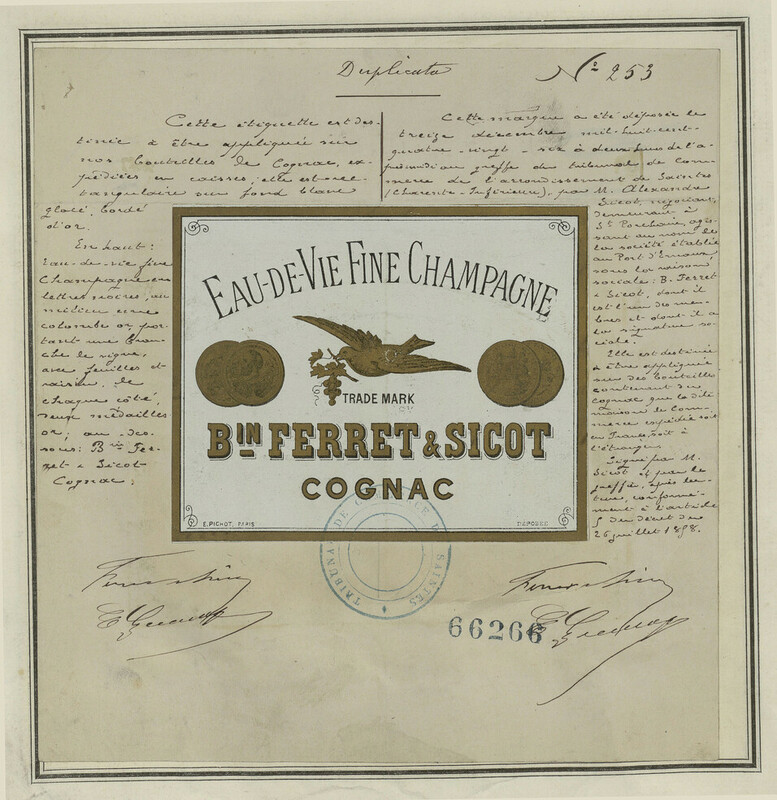 Duplicata
Nº 253
Cette étiquette est des-
tinée à être appliquée sur
nos bouteilles de Cognac, ex-
pédiées en caisses, elle est rec-
tangulaire sur fond blanc
glacé, bordé
d'or.
En haut:
Eau-de-vie fine
Champagne en
lettres noires, au
milieu une
colombe or por-
tant une bran-
che de vigne,
avec feuilles et
raisin, de
chaque côté,
deux médailles
or; au-des-
sous: Bin Fer-
ret & Sicot
Cognac;
Cette marque a été déposée le
treize décembre mil-huit-cent-
quatre-vingt-six à deux heures de l'a-
près-midi au greffe du tribunal de Com-
merce de l'arrondissement de Saintes
(Charente-Inférieure), par M. Alexandre
Sicot, négociant,
demeurant à
St Porchaire, agis-
sant au nom de
la société établie
au Port d'Envaux
sous la raison
sociale: B. Ferret
& Sicot, dont il
est l'un des mem-
bres et dont il a
la signature so-
ciale.
Elle est destinée
à être appliquée
sur des bouteilles
contenant du
cognac que la dite
maison de com-
merce expédie soit
en France, soit à
l'étranger.
Signé par M.
Sicot et par le
greffier, après lec-
ture, conformé-
ment à l'article
5 du décret du
26 juillet 1858.
EAU-DE-VIE FINE CHAMPAGNE
TRADE MARK
BIN FERRET & SICOT
COGNAC
E. PICHOT, PARIS
DÉPOSÉE
TRIBUNAL DE COMMERCE DE SAINTES
66266